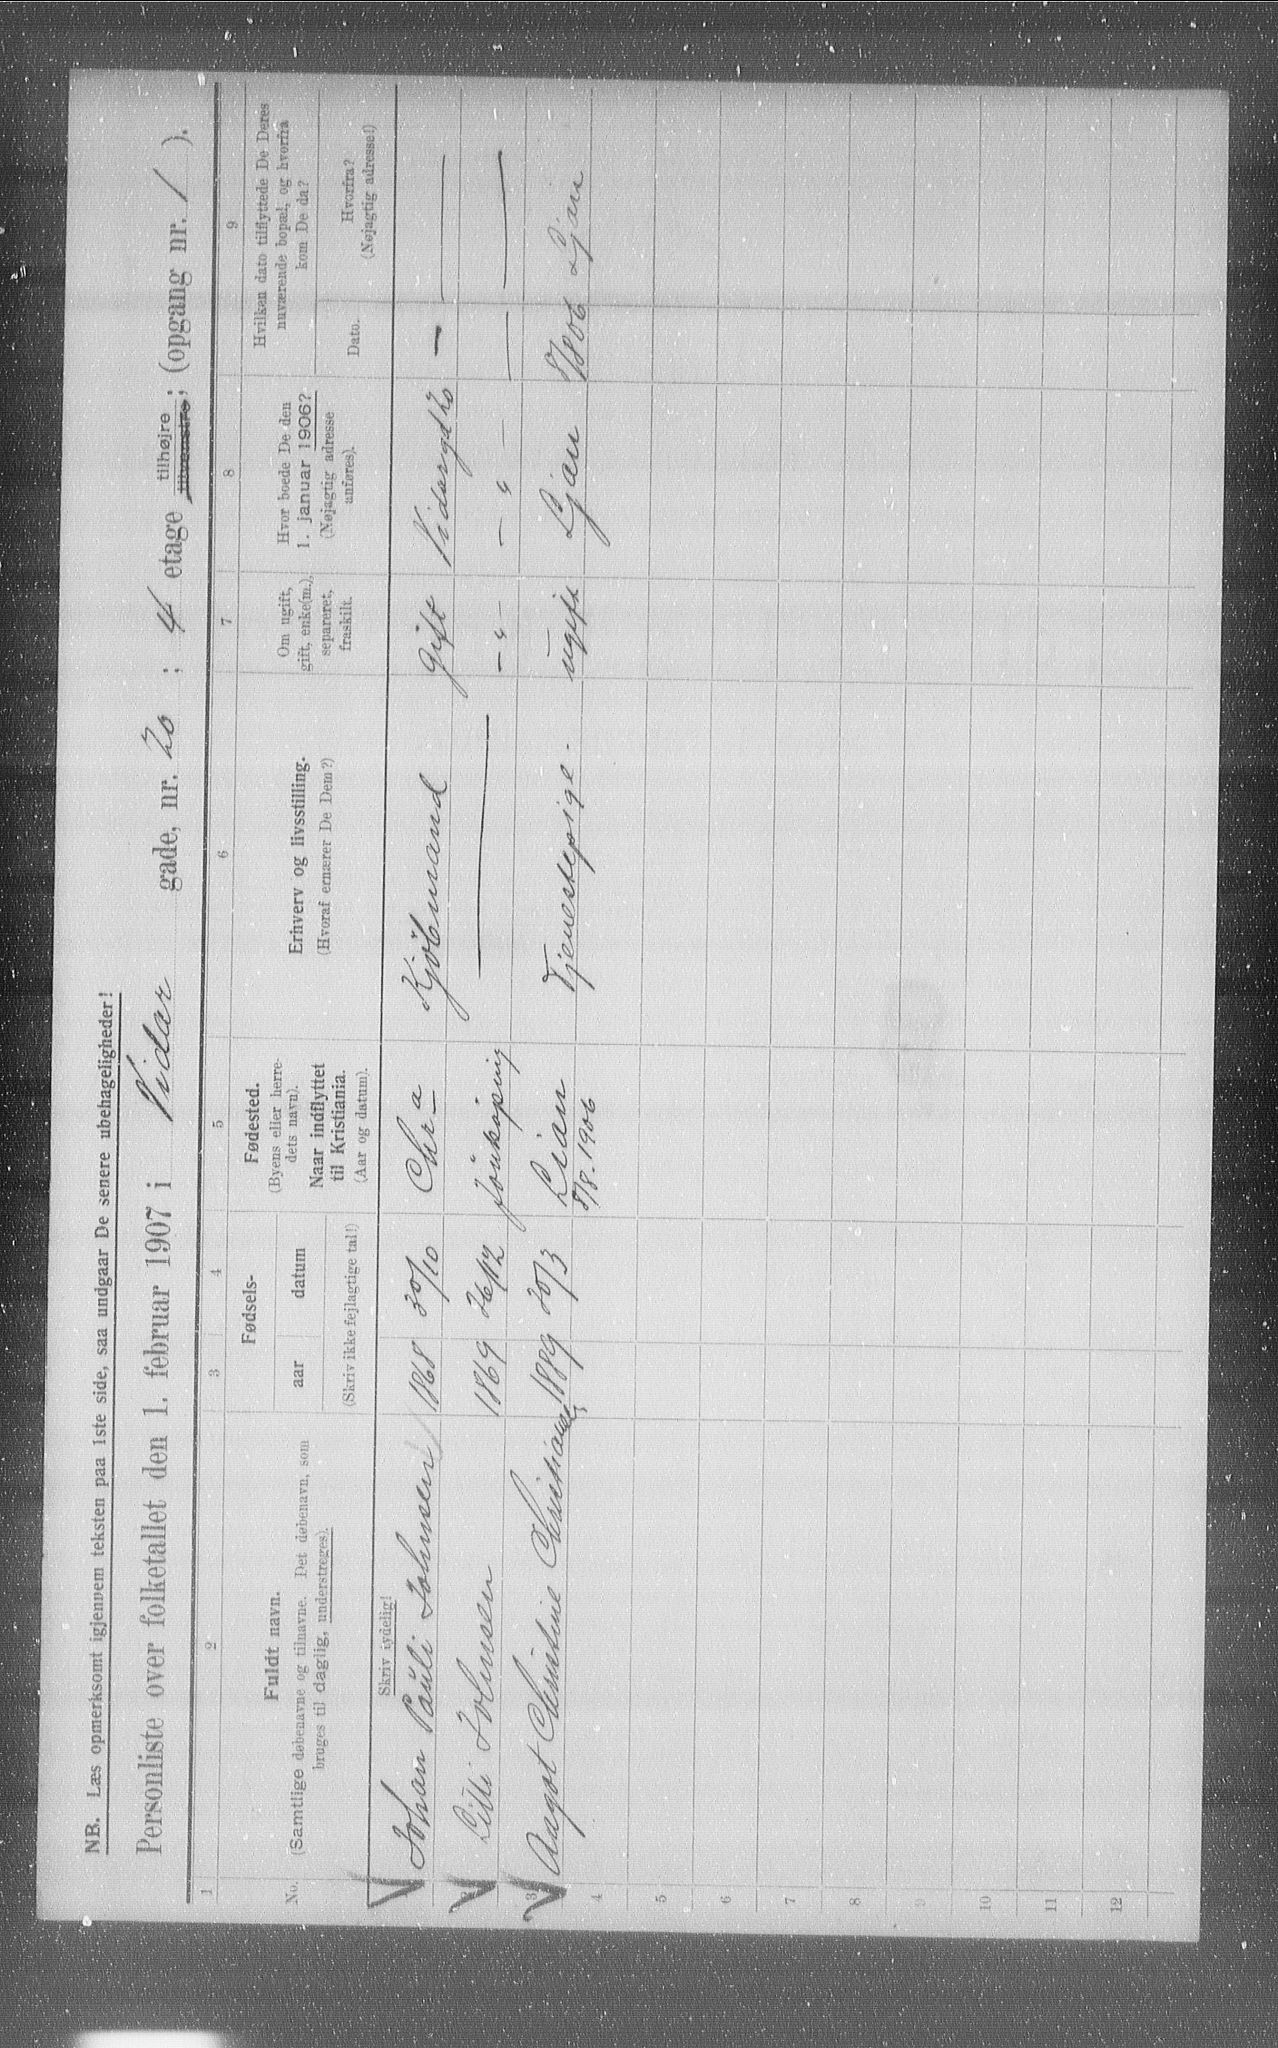 NB. Læs opmerksomt igjennem teksten paa 1ste side, saa undgaar De senere ubehageligheder!
Personliste over folketallet den 1. februar 1907 i Vidar gade, nr. 20 ; 4 etage tilhøjre tilvenstre ; (opgang nr. / ).
1 2 3 4 5 6 7 8 9
No.
Fuldt navn.
(Samtlige døbenavne og tilnavne. Det døbenavn, som
bruges til daglig, understreges).
Fødsels-
aar datum
(Skriv ikke fejlagtige tal!)
Fødested.
(Byens eller herre-
dets navn).
Naar indflyttet
til Kristiania.
(Aar og datum).
Erhverv og livsstilling.
(Hvoraf ernærer De Dem?)
Om ugift,
gift, enke(m.),
separeret,
fraskilt.
Hvor boede De den
1. januar 1906?
(Nøjagtig adresse
anføres).
Hvilken dato tilflyttede De Deres
nuværende bopæl, og hvorfra
kom De da?
Dato.
Hvorfra?
(Nøjagtig adresse!)
Skriv tydelig!
Johan Pauli Johnsen 1868 30/10 Chr a Kjöbmand gift Vidargd 20 — —
2 Lilli Johnsen 1869 26/12 Jönköping — - " - - " - — —
3 Aagot Christine Christiansen 1889 20/3 Lian Tjenestepige. ugift Ljan 8/8 06 Ljan
8/8. 1906
4
5
6
7
8
9
10
11
12